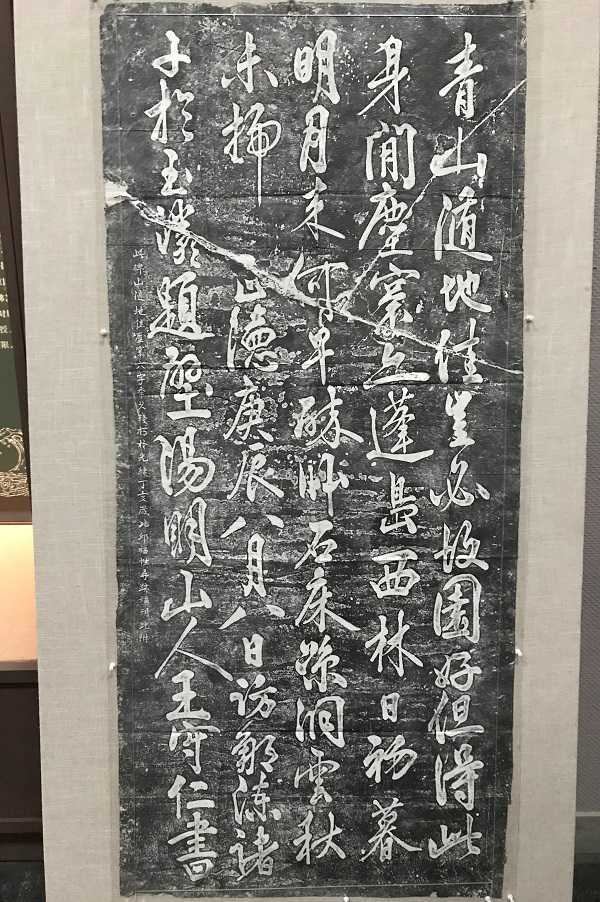 青山随地佳豈必故園好但得此
身閒塵寰亦蓬島西林日初暮
明月来何早醉卧石床涼洞雲秋
未掃　正德庚辰八月八日訪鄒陳諸
子於玉巖題壁陽明山人王守仁書